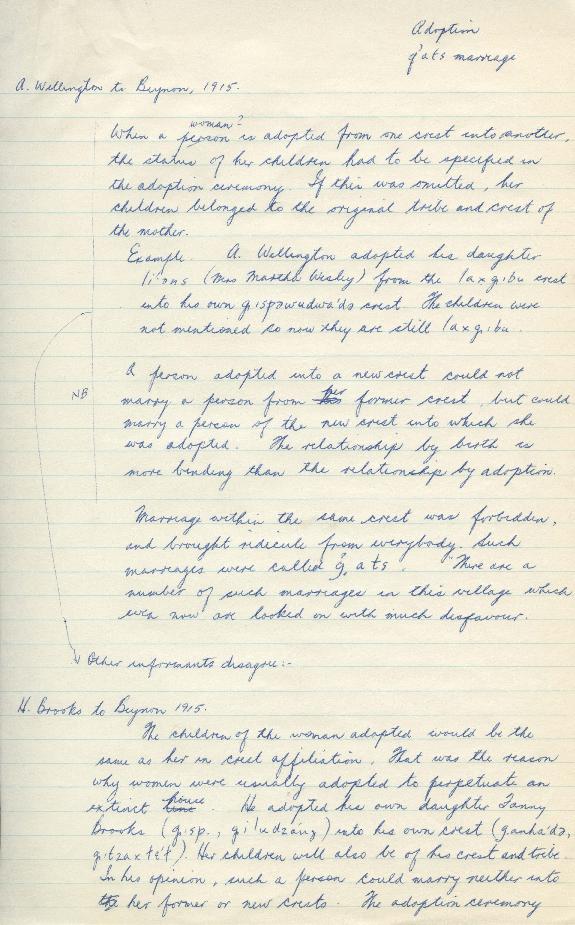 Adoption
g̓ats marriage
A. Wellington to Beynon, 1915.
woman?
When a person is adopted from one crest into another,
the status of her children had to be specified in
the adoption ceremony. If this was omitted, her
children belonged to the original tribe and crest of
the mother.
Example. A. Wellington adopted his daughter
(Mrs Martha Wesley) from the laxgibu crest
into his own gispawudwa'da crest. The children were
not mentioned so now they are still laxgibu.
A person adopted into a new crest could not
marry a person from her former crest, but could
NB
marry a person of the new crest into which she
was adopted. The relationship by birth is
more binding than the relationship by adoption.
Marriage within the same crest was forbidden,
and brought ridicule from everybody. Such
marriages were called g̓ats. "There are a
number of such marriages in this village which
even now are looked on with much disfavour.
Other informants disagree:-
H. Brooks to Beynon 1915.
The children of the woman adopted would be the
same as her in crest affiliation. That was the reason
why women were usually adopted to perpetuate an
extinct house. He adopted his own daughter Fanny
Brooks (gisp., gi'ludzáuz) into his own crest (ganha'da,
gitzaxłéł). Her children will also be of his crest and tribe.
In his opinion, such a person could marry neither into
her former or new crests. The adoption ceremony